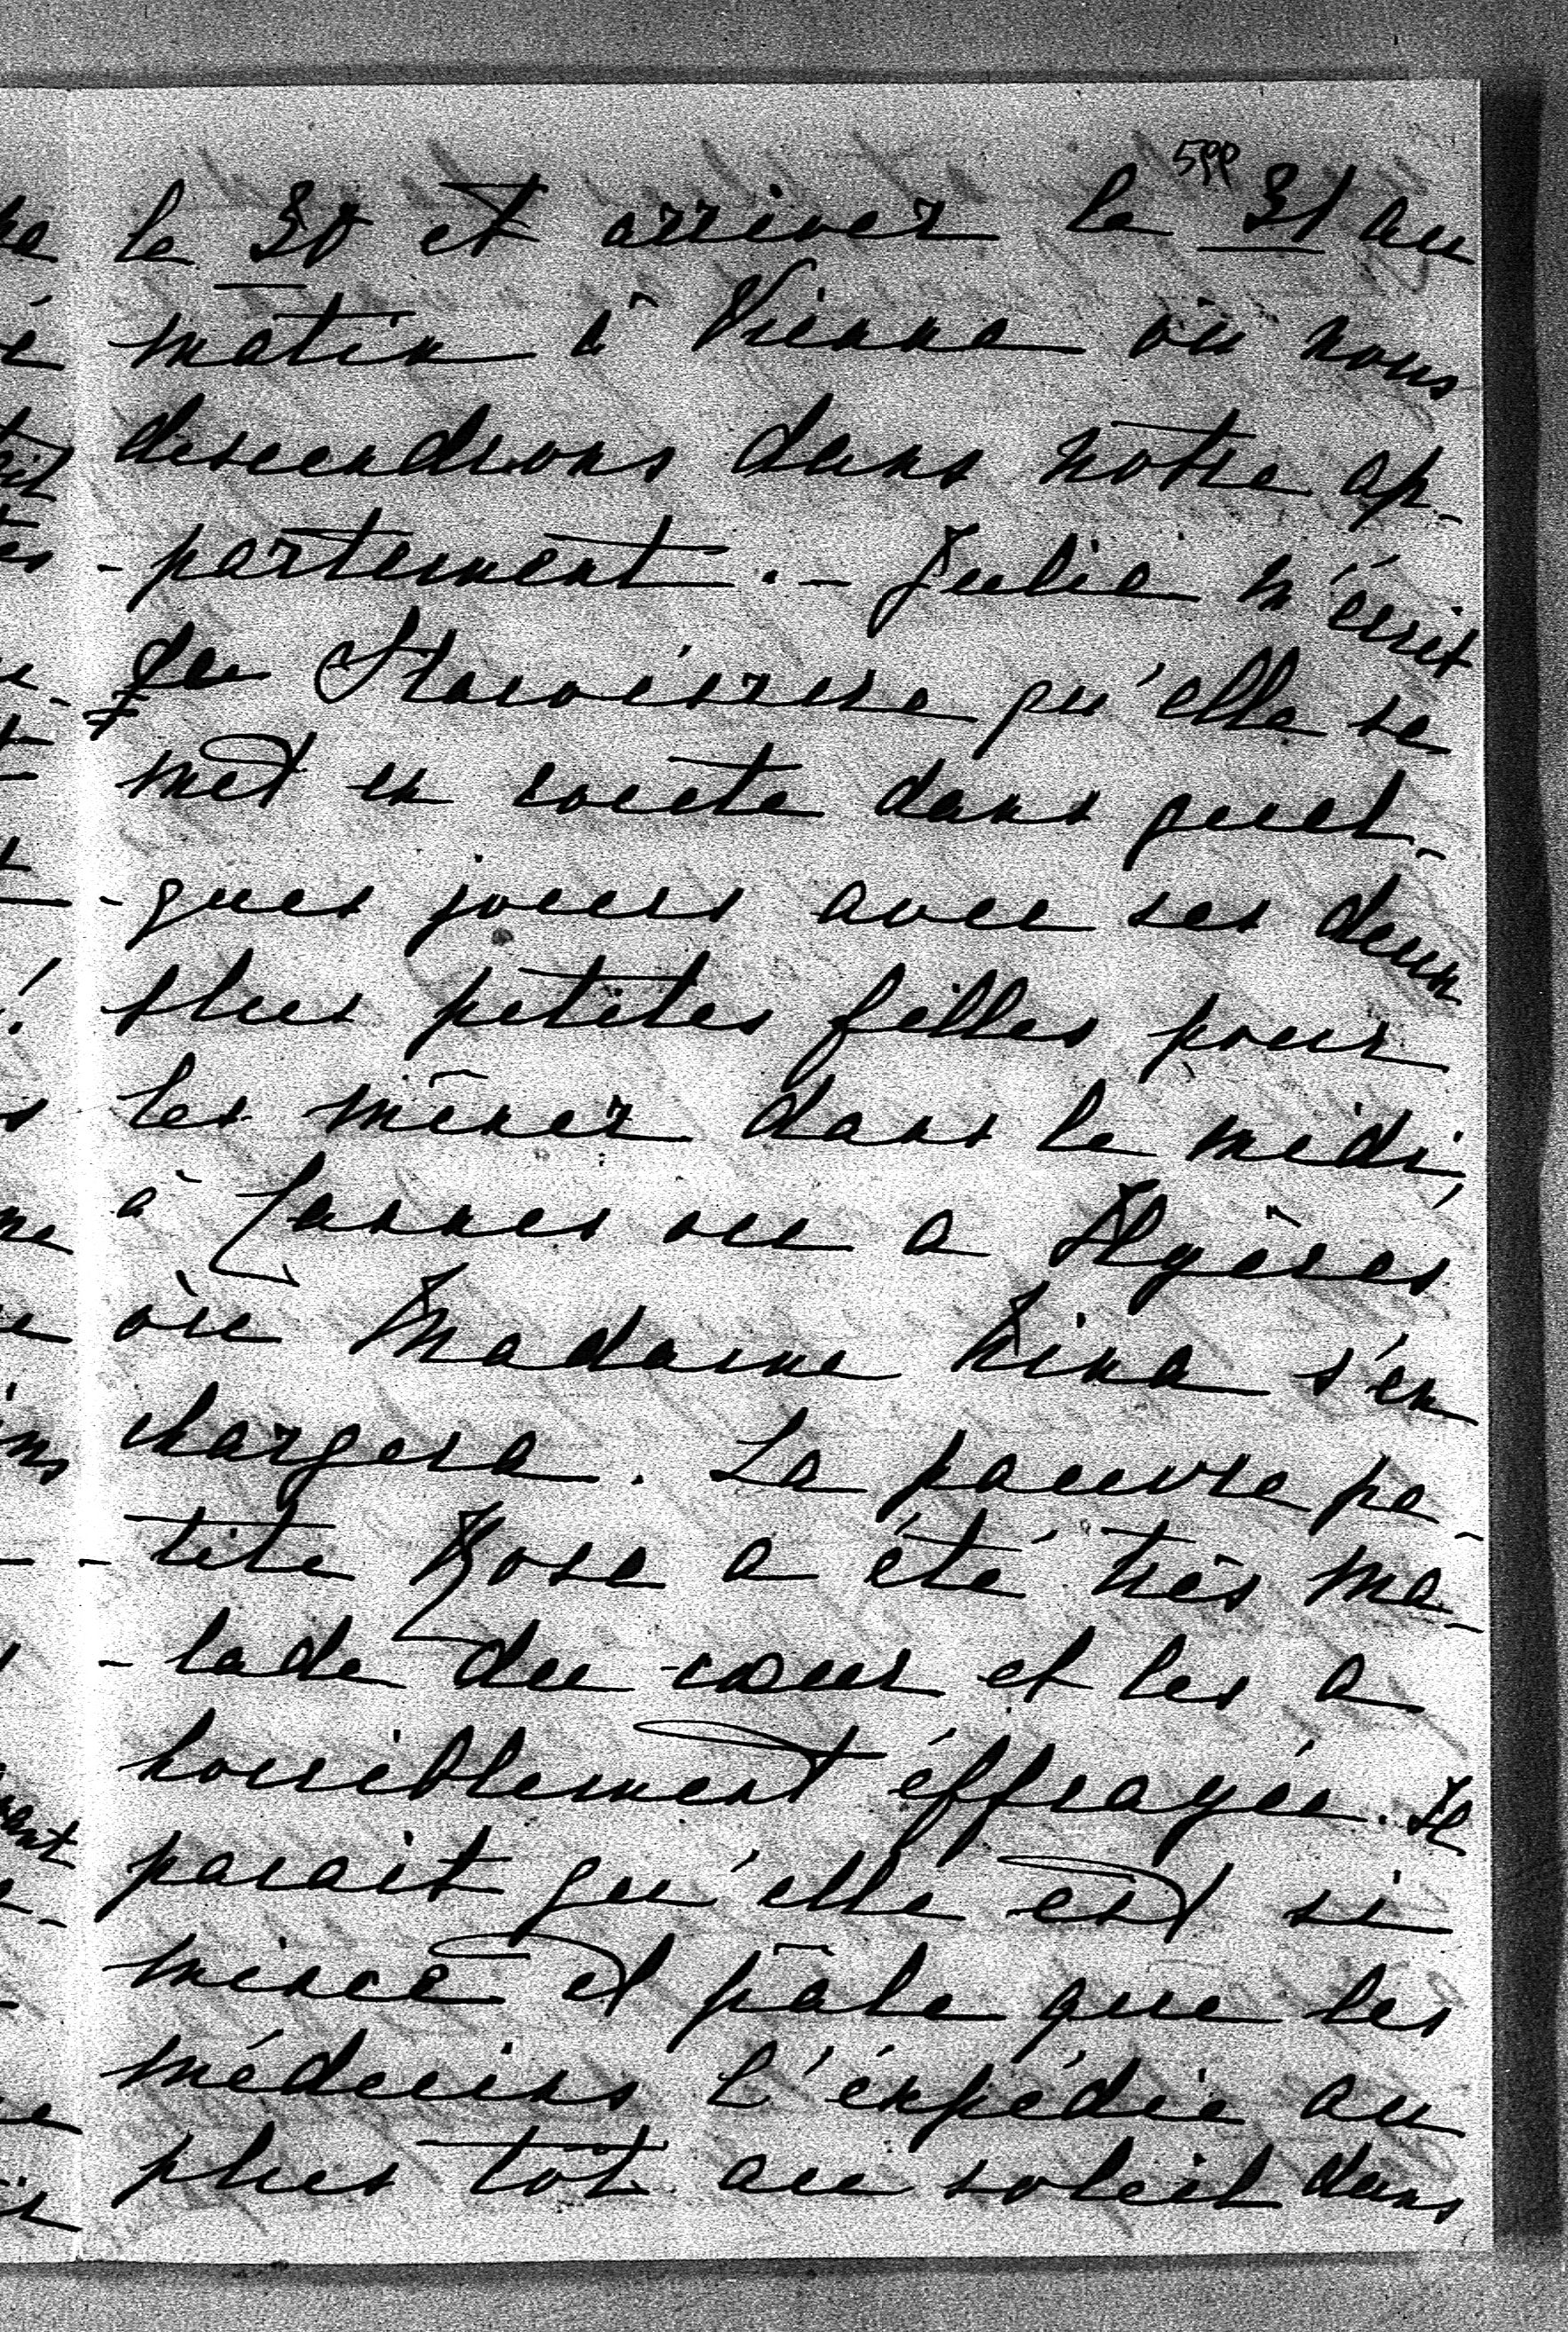 599
le 30 et arriver le 31 au
matin à Vienne où nous
descendrons dans notre ap-
-partement. – Julie m'écrit
de qu'elle se
met en route dans quel-
-ques jours avec ses deux
plus petites filles pour
les mêner dans le midi,
à Cannes ou a Hyères
où Madame Nina s'en
chargera. La pauvre pe-
-tite Rose a été très ma-
-lade du cœur et les a
horriblement éffrayés. Il
parait qu'elle est si
mince et pâle que les
médecins l'éxpédie au
plus tôt au soleil dans